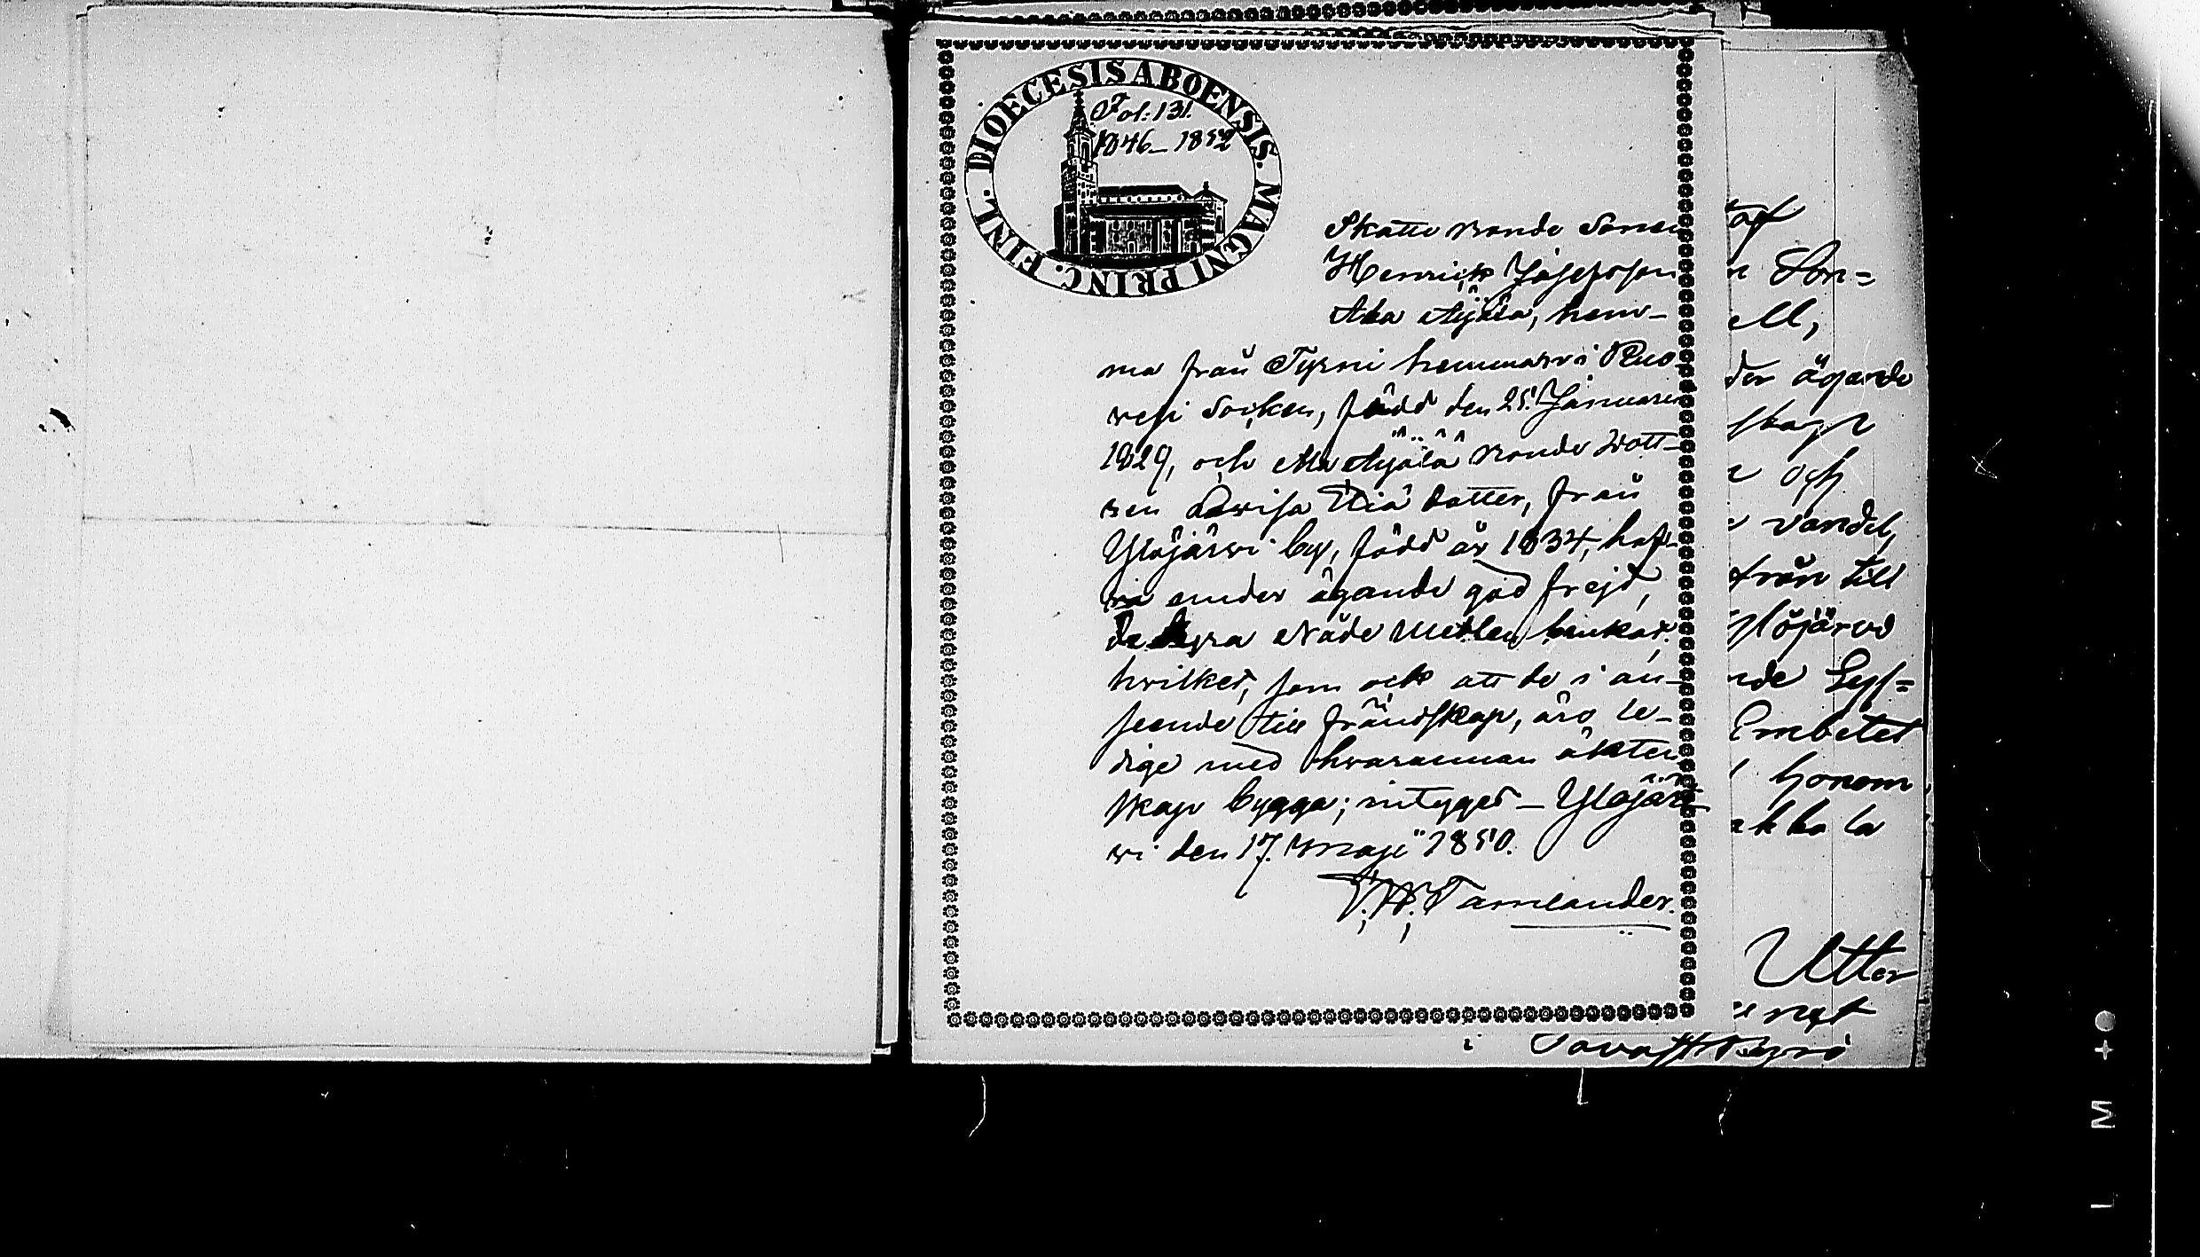 DIOECESIS ABOENSIS. MAGNI PRINC. FINL.
Fol: 131.
1846-1852
Skatte Bonde Sonen
Henrick Josefsson
Ala Äijälä, hem-
ma från Tyrni hemman i Ruo
wesi Socken, född den 25. Januarii
1829, och Ala Äijälä Bonde Dott-
ren Lovisa dotter, från
Ylöjärwi by, född år 1834, haf-
wa under ägande god frejd,
begra Nåde Medlen brukat,
hvilket, som ock att de i an-
seende till frändskap, äro le-
dige med hvarannan äkten
skap bygga; intygas - Ylöjär
wi den 17. Maji 1850.
Tamlander.
taf
n Son=
ell,
der ägande
skap
och
vandel,
ifrån till
Ylöjärvi
nde Lys=
Embetet
honom
akkala
Utter
i Tavastkyrö
L M +